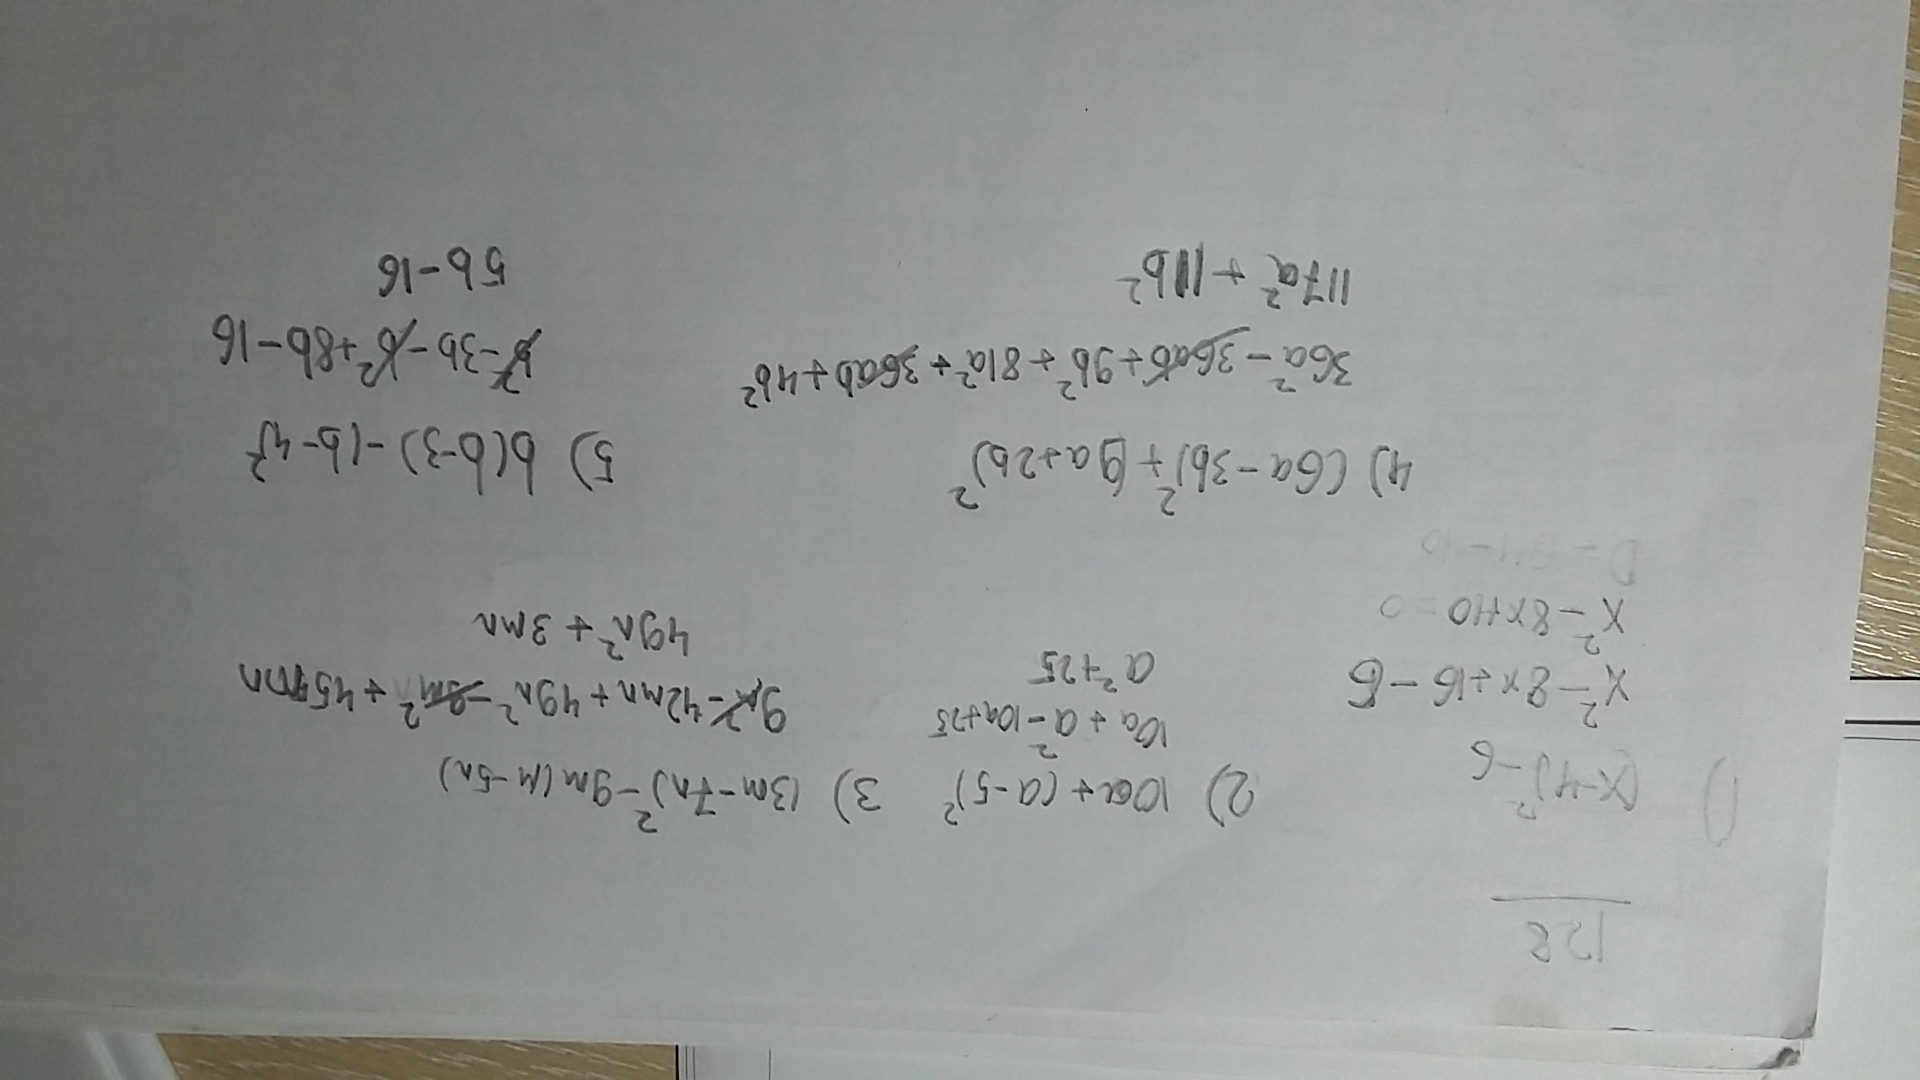 128
1) (x-4)²-6
x²-8x+16-6
x²-8x+10=0
2) 10a+(a-5)²
10a+a²-10a+25
a²+25
3) (3m-7n)²-9m(m-5n)
9m²-42mn+49n²-9m²+45mn
49n²+3mn
4) (6a-3b)²+(9a+2b)²
36a²-36ab+9b²+81a²+36ab+4b²
117a²+11b²
5) b(b-3)-(b-4)²
b²-3b-b²+8b-16
5b-16